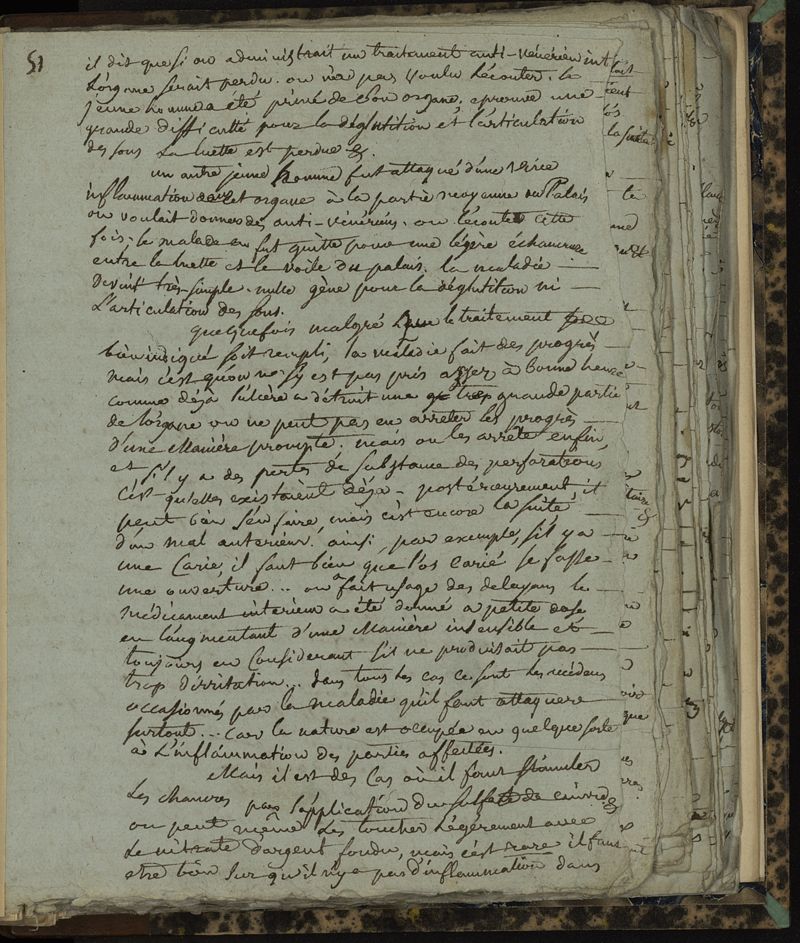 51
il dit que si on administrait un traitement anti-vénérien int
L'organe serait perdu. on n'a pas voulu l'écouter. le
jeune homme a été privé de son organe, eprouve une
grande difficulté pour la déglutition et l'articulation
des sons La luette est perdue &.
un autre jeune homme fut attaqué d'une
inflammation cet organe à la partie moyenne du Palais
on voulait donner des anti-vénériens. on l'écouta cette
fois; le malade en fut quitte pour une légère échancrure
entre la luette et le voile du palais. la maladie
Devint très-simple. nulle gène pour la déglutition ni
L'articulation des sons.
quelquefois malgré que le traitement
bien indiqué soit rempli, la maladie fait des progrès
mais c'est qu'on ne s'y est pas pris assez à bonne heure
comme déjà l'ulcère a détruit une trop grande partie
de l'organe on ne peut pas en arrêter les progrès
d'une Manière prompte. mais on les arrête enfin,
et s'il y a des pertes de substance des perforations
C'est qu'elles existaient déjà - postérieurement, il
peut bien s'en faire, mais c'est encore la suite
d'un mal anterieur. ainsi, par exemple, s'il y a
une Carie, il faut bien que l'os Carié se fasse
une ouverture... on a fait usage des delayans le
médicament interieur a été donné a petite dose
en l'augmentant d'une Manière insensible et
toujours en Considerant s'il ne produisait pas
trop d'irritation... Dans tous les cas ce sont les accidens
occasionnés par la maladie qu'il faut attaquer
surtout... Car la nature est occupée en quelque sorte
à L'inflammation des parties affectées.
Mais il est des Cas où il faut stimuler
Les chancres par l'application du sulfate de cuivre &
on peut même les toucher légèrement avec
Le nitrate d'argent fondu, mais c'est rare il faut
etre bien sur qu'il n'y a pas d'inflammation dans